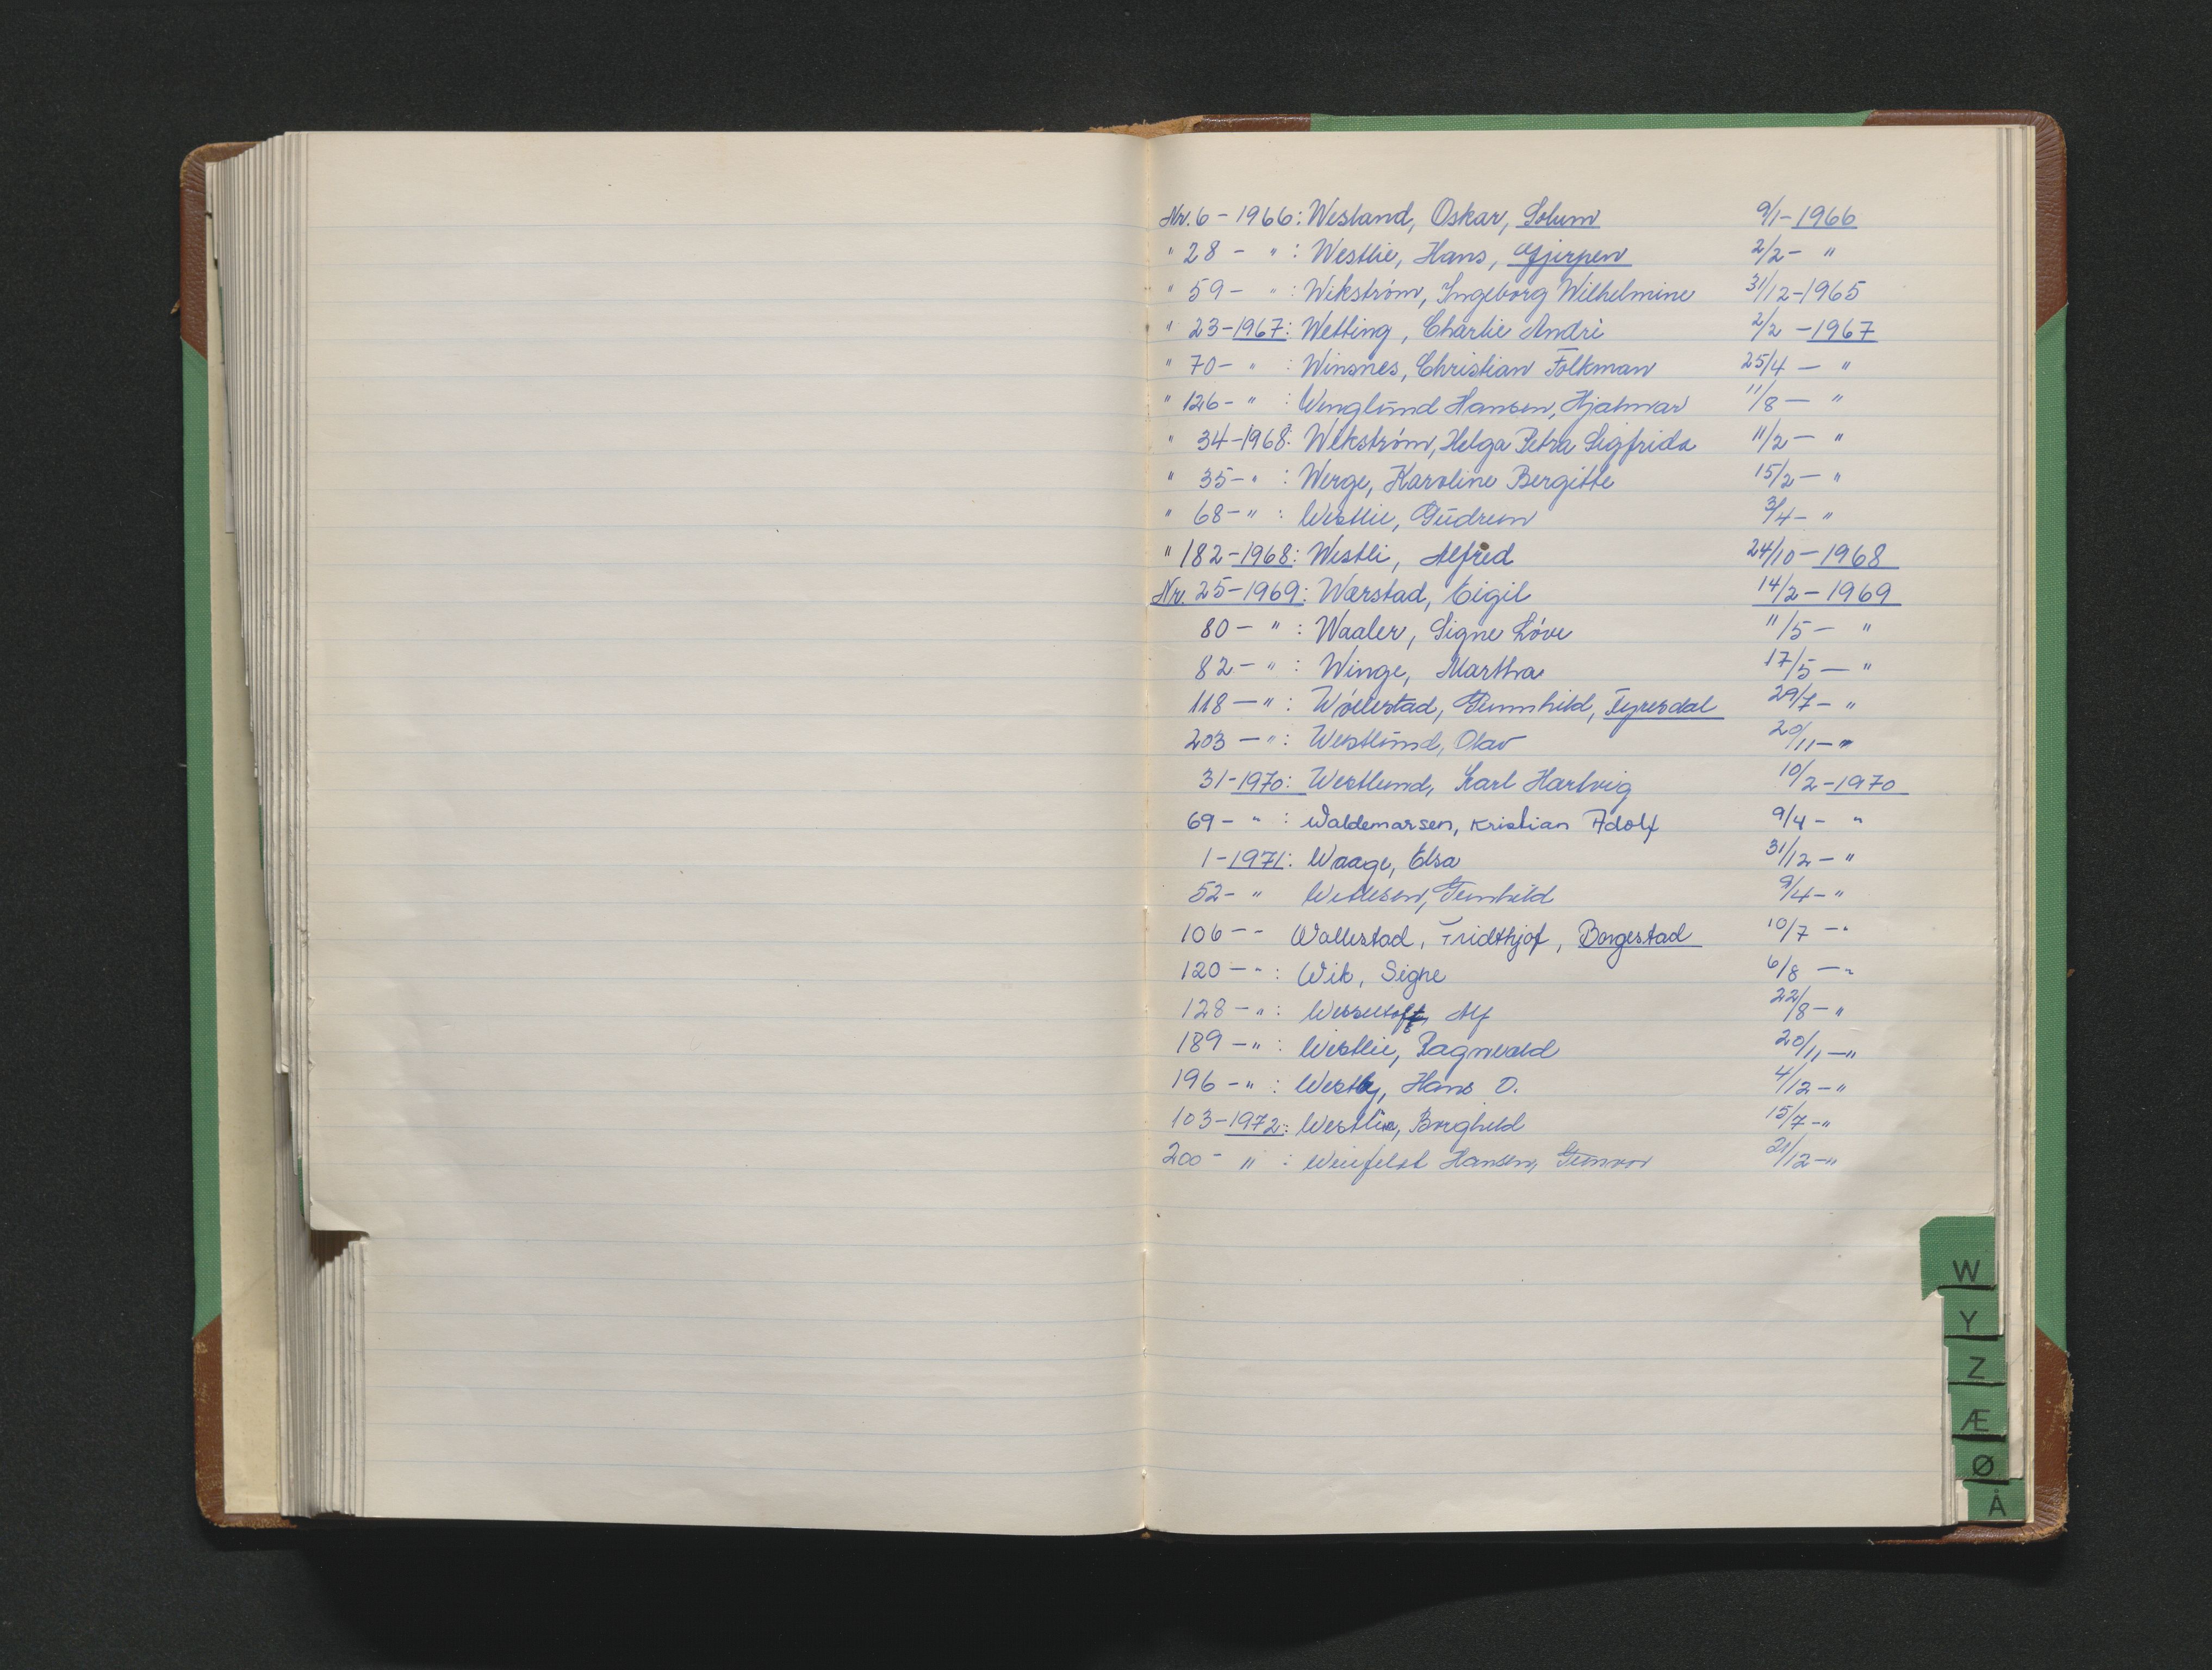 Nr. 6 - 1966: Wesland, Oskar, Solum 9/1-1966
" 28 - " : Westlie, Hans, Gjerpen 2/2- "
" 59 - " : Wikström, Ingeborg Wilhelmine 31/12-1965
" 23-1967: Wetting, Charlie André 2/2 -1967
" 70- " : Winsnes, Christian Folkman 25/4 - "
" 126- " : Wenglund Hansen, Hjalmar 11/8 - "
" 34-1968: Wikström, Helga Petra Sigfrida 11/2 - "
" 35- " : Werge, Karoline Bergitte 15/2 - "
" 68- " : Westlie, Gudrun 3/4- "
" 182-1968: Westli, Alfred 24/10-1968
Nr. 25-1969: Wærstad, Eigil 14/2-1969
80 - " : Waaler, Signe Löve 11/5 - "
82 - " : Winge, Martha 17/5 - "
118 - " : Wöllestad, Gunnhild, Fyresdal 29/7- "
203 - " : Westlund, Olav 20/11- "
31-1970: Westlund, Karl Hartvig 10/2-1970
69 - " : Waldemarsen, Kristian Adolf 9/4 - "
1-1971: Waage, Elsa 31/12 - "
52- " Wetlesen, Gunhild 9/4- "
106 - - Wallestad, Fridthjof, Borgestad 10/7 - "
120 - " : Wik, Signe 6/8 - "
128 - " : Wesseltoft, Alf 22/8- "
189 - " : Westlie, Ragnvald 20/11 - "
196 - " : Westby, Hans O. 4/12 - "
103-1972: Westlie, Borghild 15/7 - "
200 - " : Hansen, Gunvor 21/12 - "
W
Y
Z
Æ
Ø
Å